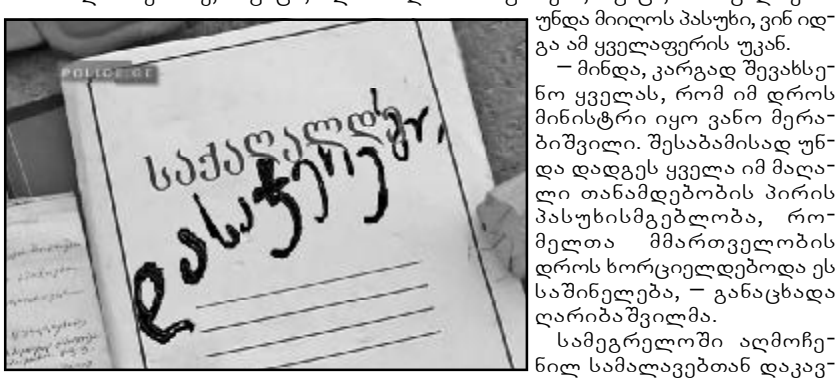 POLICE.GE
საქაღალდე
დასაჭერი
უნდა მიიღოს პასუხი, ვინ იდ-
გა ამ ყველაფერის უკან.
– მინდა, კარგად შევახსე-
ნო ყველას, რომ იმ დროს
მინისტრი იყო ვანო მერა-
ბიშვილი. შესაბამისად უნ-
და დადგეს ყველა იმ მაღა-
ლი თანამდებობის პირის
პასუხისმგებლობა, რო-
მელთა მმართველობის
დროს ხორციელდებოდა ეს
საშინელება, – განაცხადა
ღარიბაშვილმა.
სამეგრელოში აღმოჩე-
ნილ სამალავებთან დაკავ-